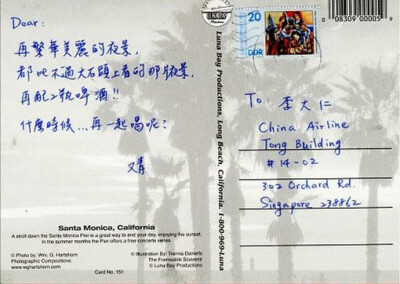 Dear:
再繁華美麗的夜景,
都比不過大石頭上看的那片夜景,
再配2瓶啤酒!!
什麼時候…再一起喝呢?
又青
Santa Monica, California
A stroll down the Santa Monica Pier is a great way to end your day, enjoying the sunset.
In the summer months the Pier offers a free concerts series.
© Photo by: Wm. G. Hartshorn
Photographic Compositions
www.wghartshorn.com
© Illustration By: Trenna Daniells
The Frameable Souvenir
© Luna Bay Productions
Card No. 151
Luna Bay Productions, Long Beach, California. 1-800-969-Luna
20
DDR
08309 00005 9
To 李大仁
China Airline
Tong Building
#14-02
302 Orchard Rd.
Singapore 238862